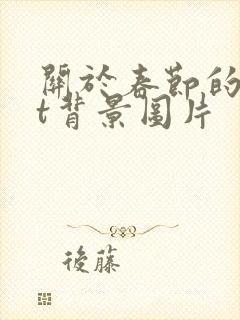 關於春節的
t背景圖片
後藤